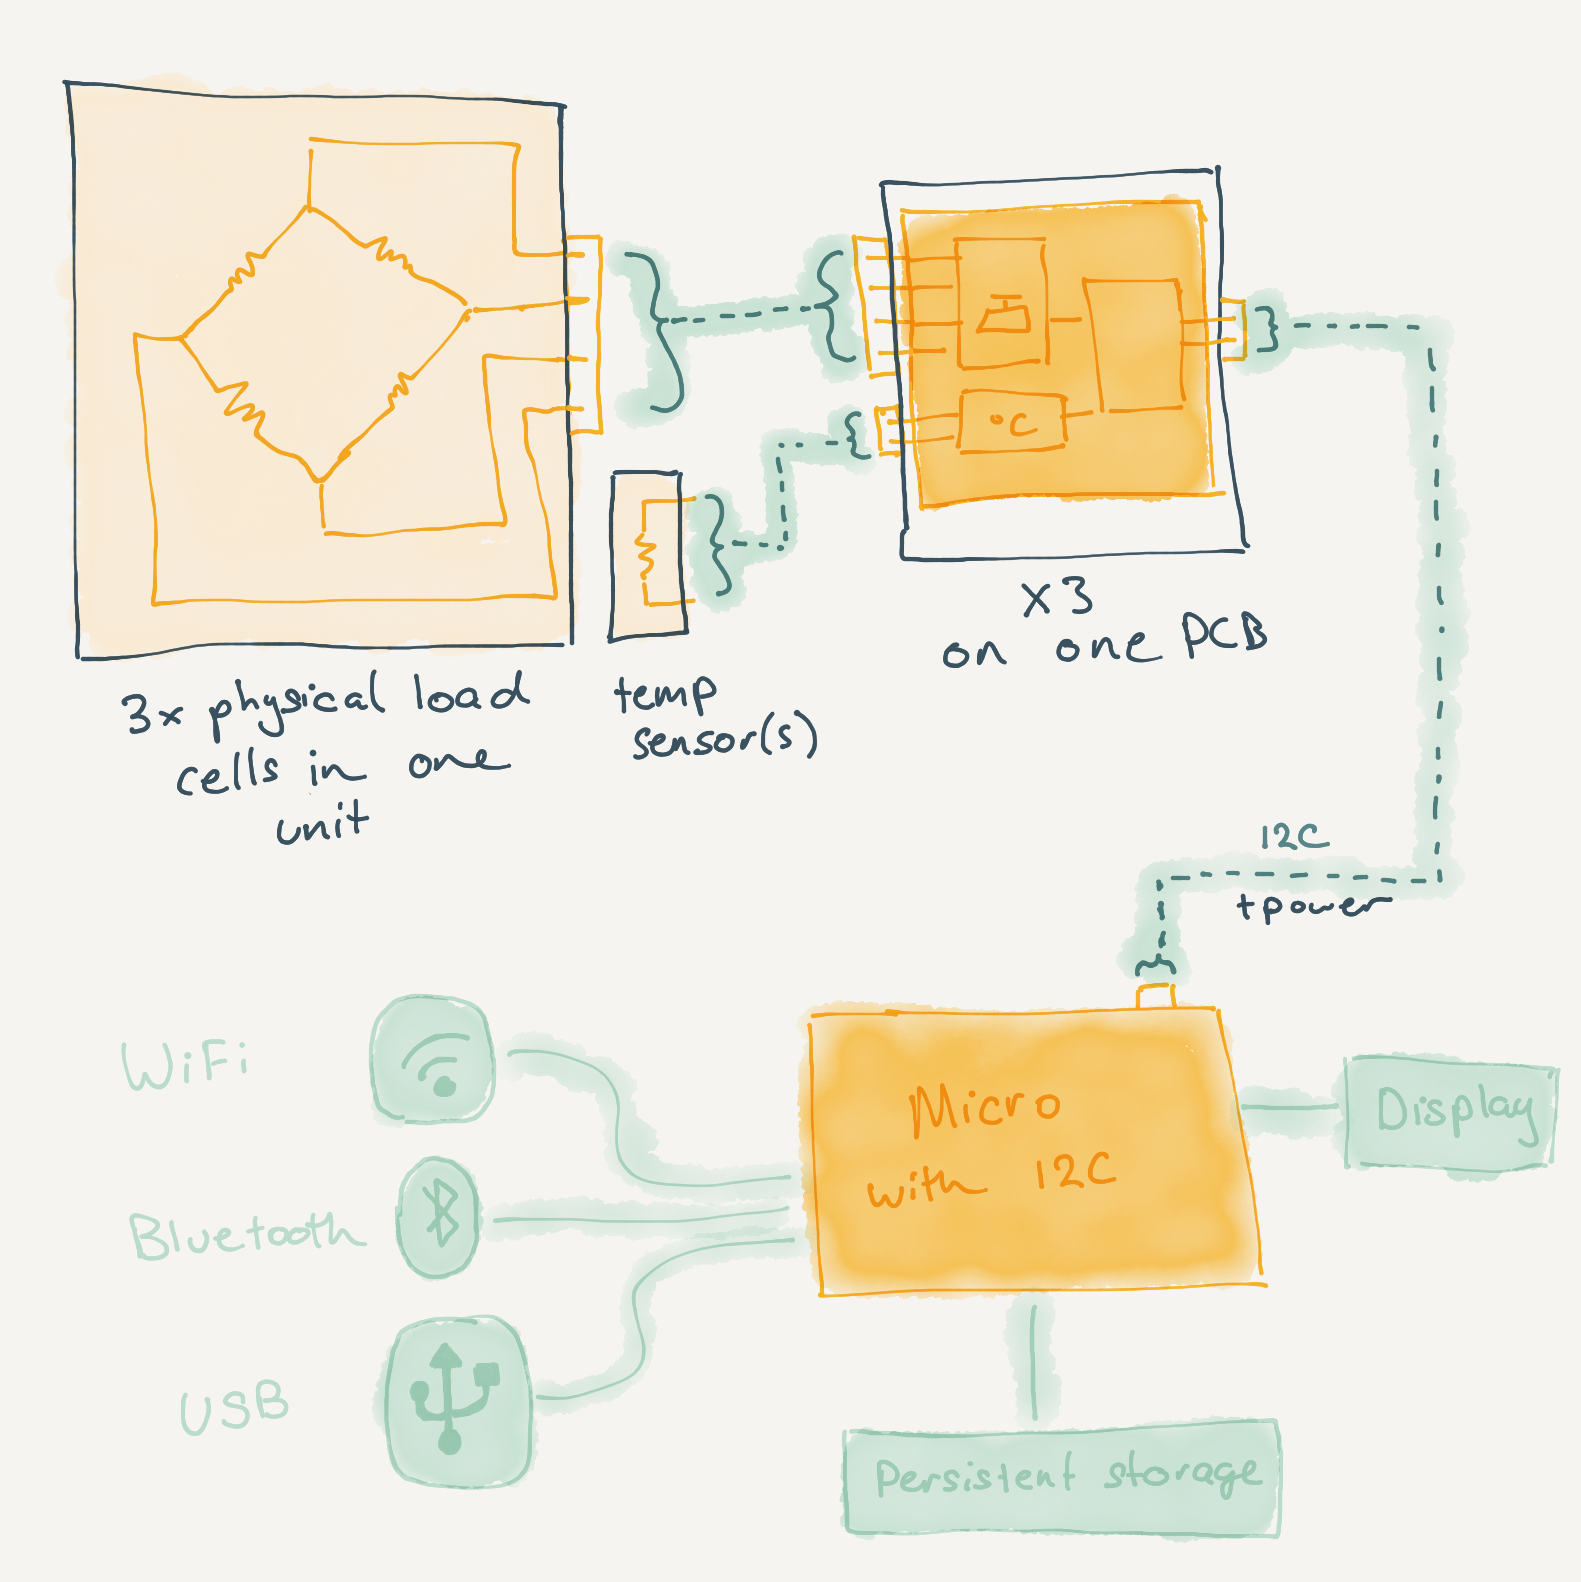 °C
x3
on one PCB
3x physical load
cells in one
unit
temp
sensor(s)
I2C
+power
WiFi
Bluetooth
USB
Micro
with I2C
Display
Persistent storage